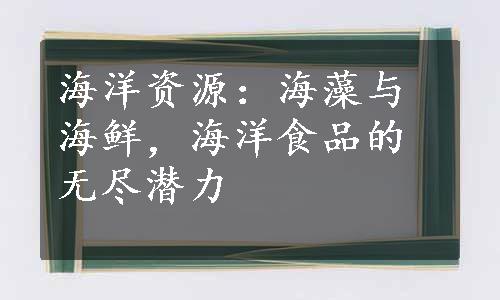 海洋资源：海藻与
海鲜，海洋食品的
无尽潜力